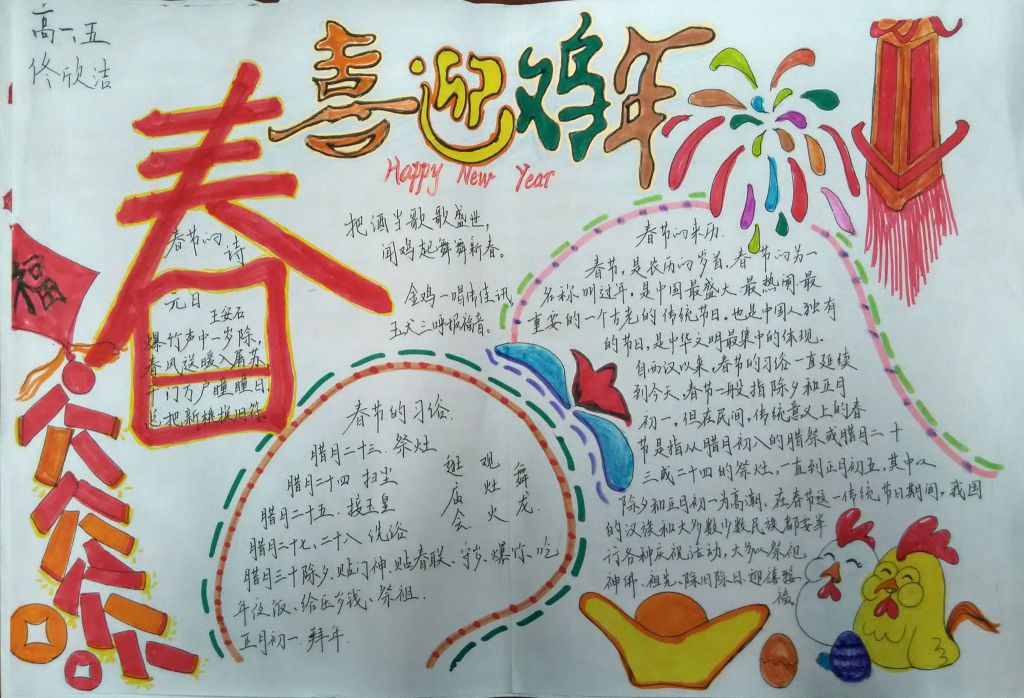 高一、五
佟欣洁
喜迎鸡年
Happy New Year
春
福
春节的
诗
元日
王安石
爆竹声中一岁除,
春风送暖入屠苏,
千门万户瞳瞳日,
总把新桃换旧符.
把酒当歌歌盛世,
闻鸡起舞舞新春。
金鸡一唱传佳讯
玉犬三呼报福音。
春节的来历.
春节,是农历的岁首,春节的另一
名称叫过年,是中国最盛大.最热闹.最
重要的一个古老的传统节日。也是中国人独有
的节日.是中华文明最集中的体现.
自西汉以来,春节的习俗一直延续
到今天.春节一般指除夕和正月
初一。但在民间,传统意义上的春
节是指从腊月初八的腊祭或腊月二十
三或二十四的祭灶,一直到正月初五,其中以
除夕和正月初一为高潮。在春节这一传统节日期间,我国
的汉族和大多数少数民族都要举
行各种庆祝活动,大多以祭祀
神佛.祖先、除旧除日.迎禧
福
春节的习俗.
腊月二十三.祭灶
腊月二十四 扫尘
腊月二十五、接玉皇
腊月二十七、二十八 洗浴
腊月三十除夕.贴门神.贴春联、守岁、爆竹、吃
年夜饭、给压岁钱、祭祖.
正月初一.拜年.
逛庙会
观灶火
舞龙.